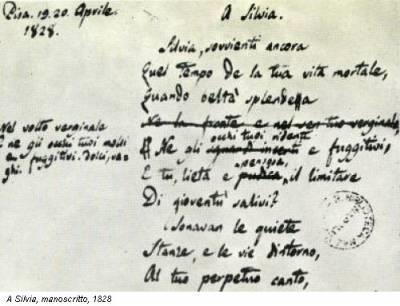 Pisa. 19.20. Aprile.
1828.
A Silvia.
Silvia, sovvienti ancora
Quel tempo de la tua vita mortale,
Quando beltà splendea
Ne la fronte e nel sen tuo verginale,
occhi tuoi ridenti
E Ne gli sguardi incerti e fuggitivi,
pensosa,
E tu, lieta e pudica, il limitare
Di gioventù salivi?
Sonavan le quiete
Stanze, e le vie dintorno,
Al tuo perpetuo canto,
Nel volto verginale
E ne gli occhi tuoi molli
e fuggitivi. dolci, va-
ghi.
A Silvia, manoscritto, 1828